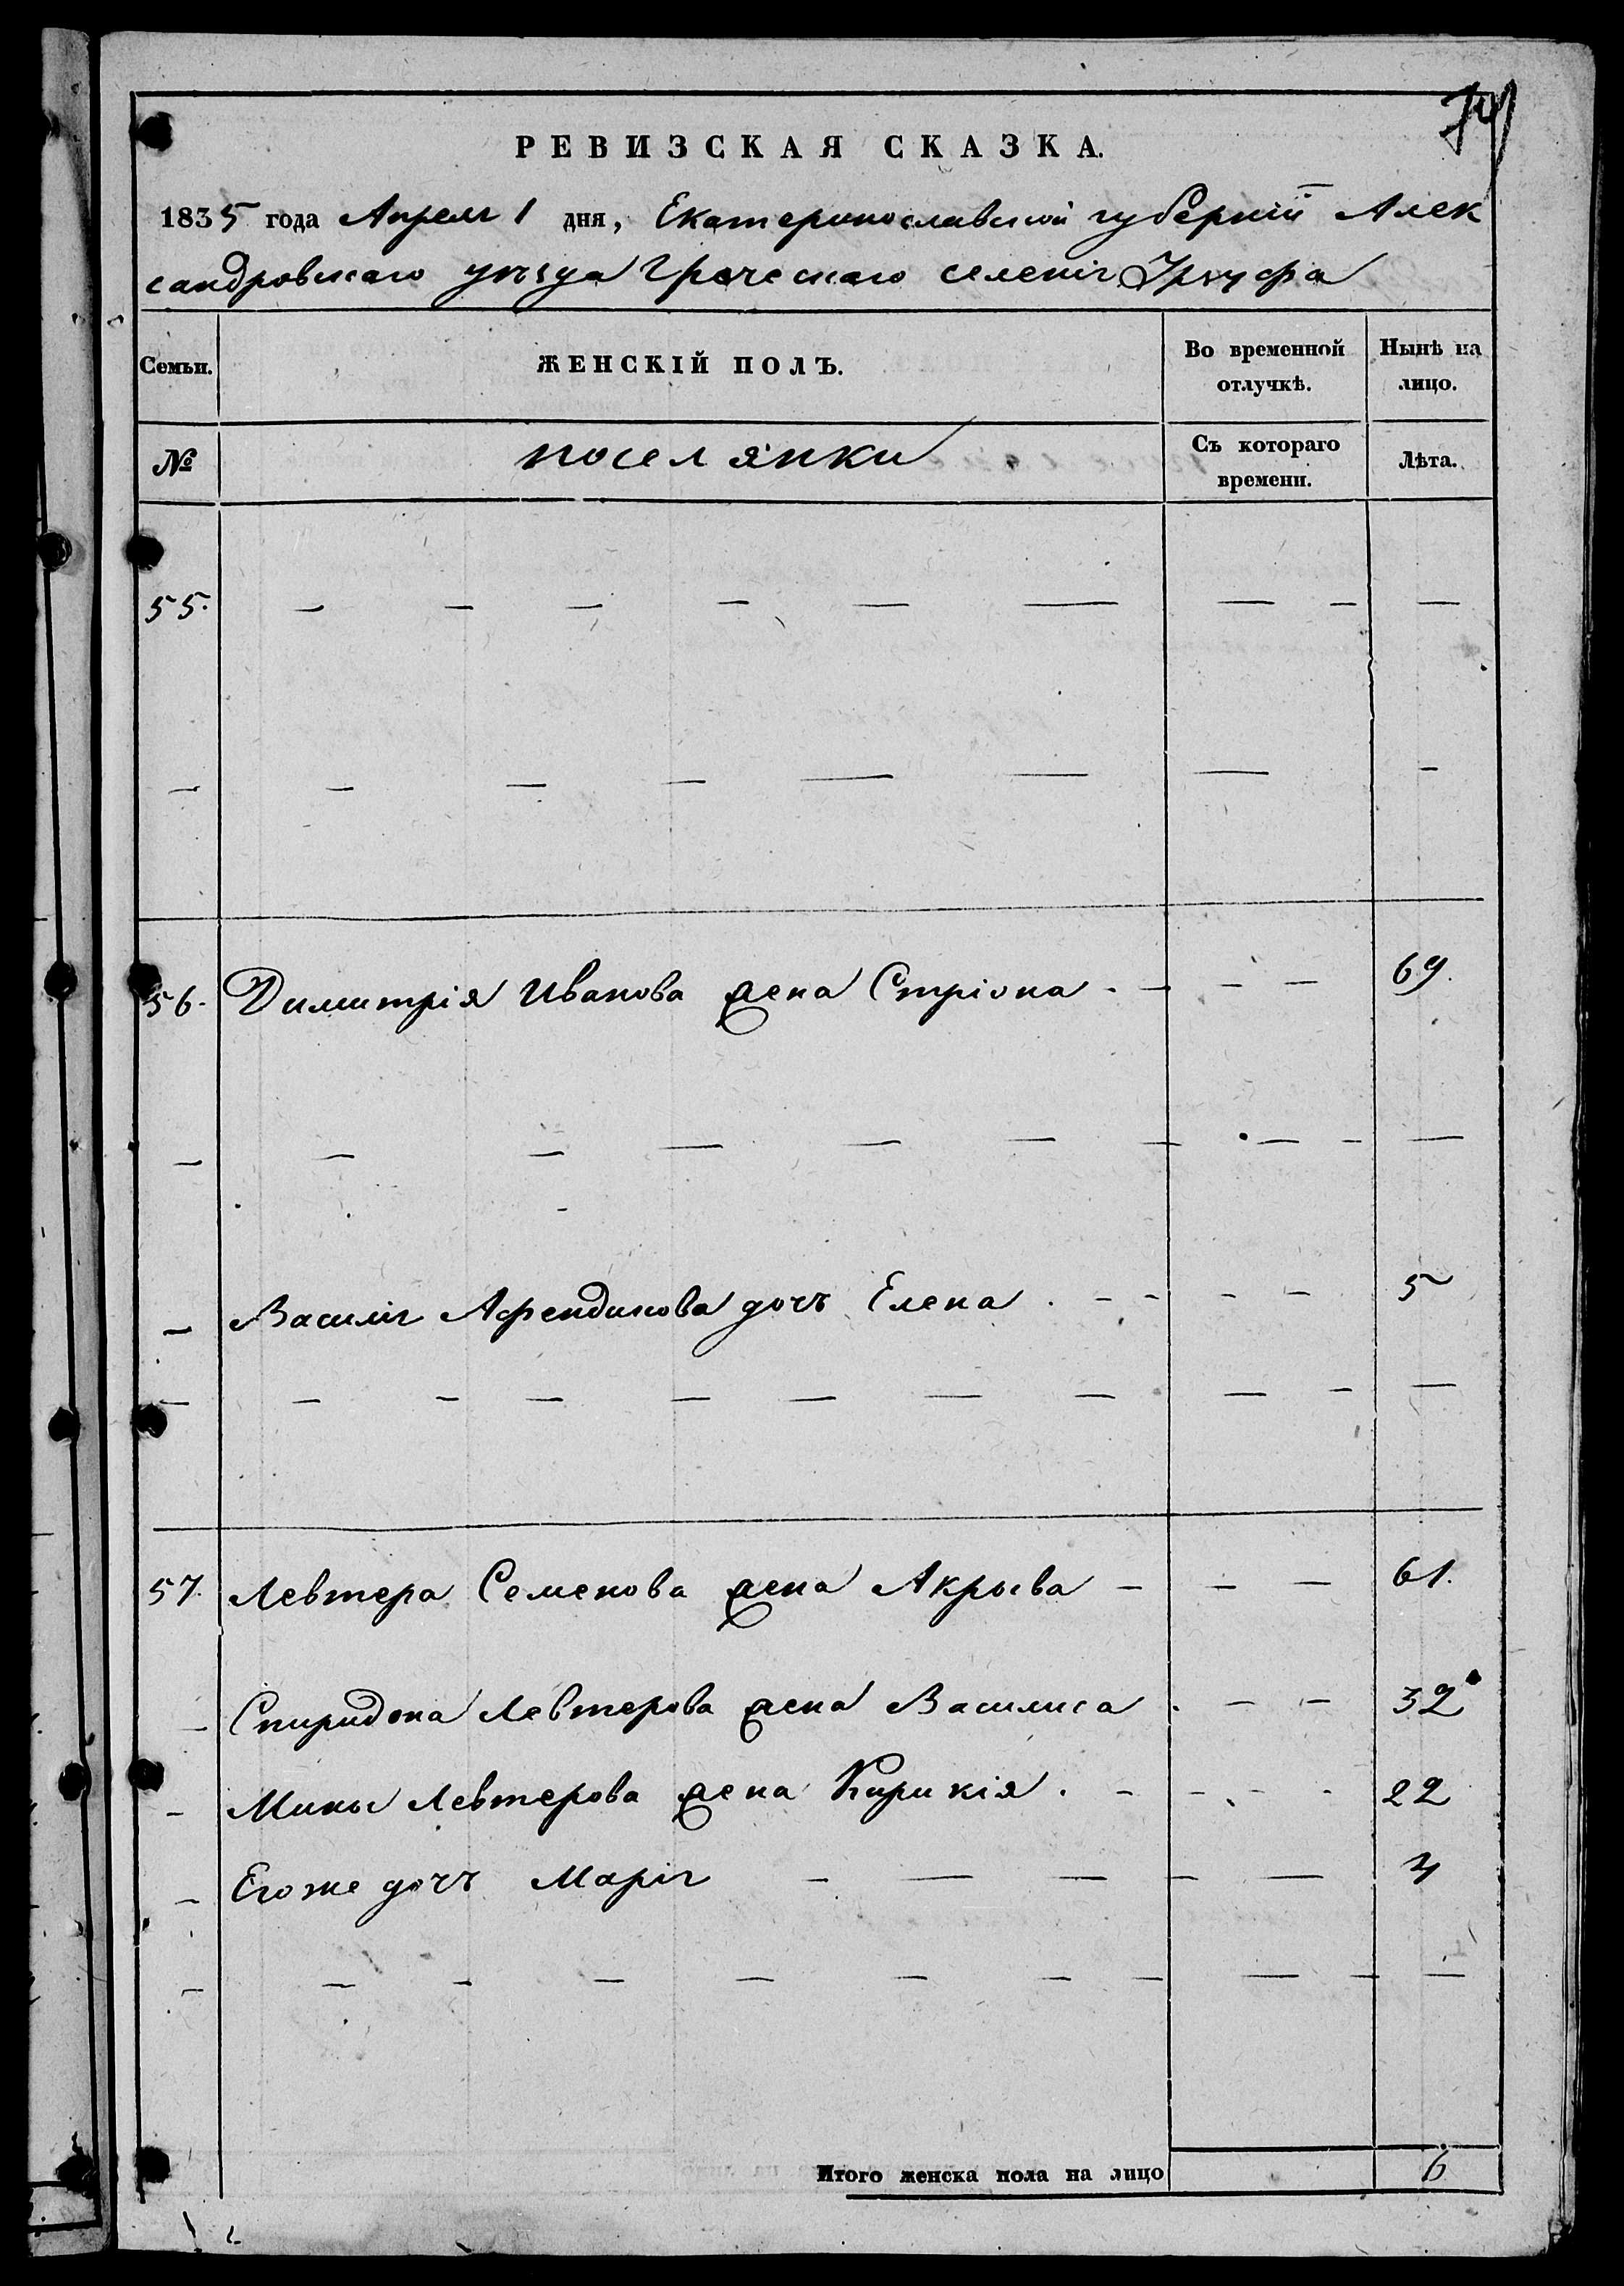 РЕВИЗСКАЯ СКАЗКА.
1835 года Апреля 1 дня, Екатеринославской губерніи Алек
сандровскаго уѣзда Греческаго селенія Урзуфа
Семьи. ЖЕНСКІЙ ПОЛЪ. Во временной отлучкѣ. Нынѣ на лицо.
№ поселянки Съ котораго времени. Лѣта.
55. — — — — — — — — —
— — — — — — — —
56. Димитрія Иванова жена Стріона - - - - 69.
— — — — — — — — — —
— Василія Афендикова дочь Елена . - - - - 5
— — — — — — — — — — —
57. Левтера Семенова жена Акрыва - - — 61.
— Спиридона Левтерова жена Василиса . — — 32
— Мины Левтерова жена Кирикія . - - - - 22
— Егоже дочь Марія — — — — — 4
— — — — — — — — — — —
Итого женска пола на лицо 6